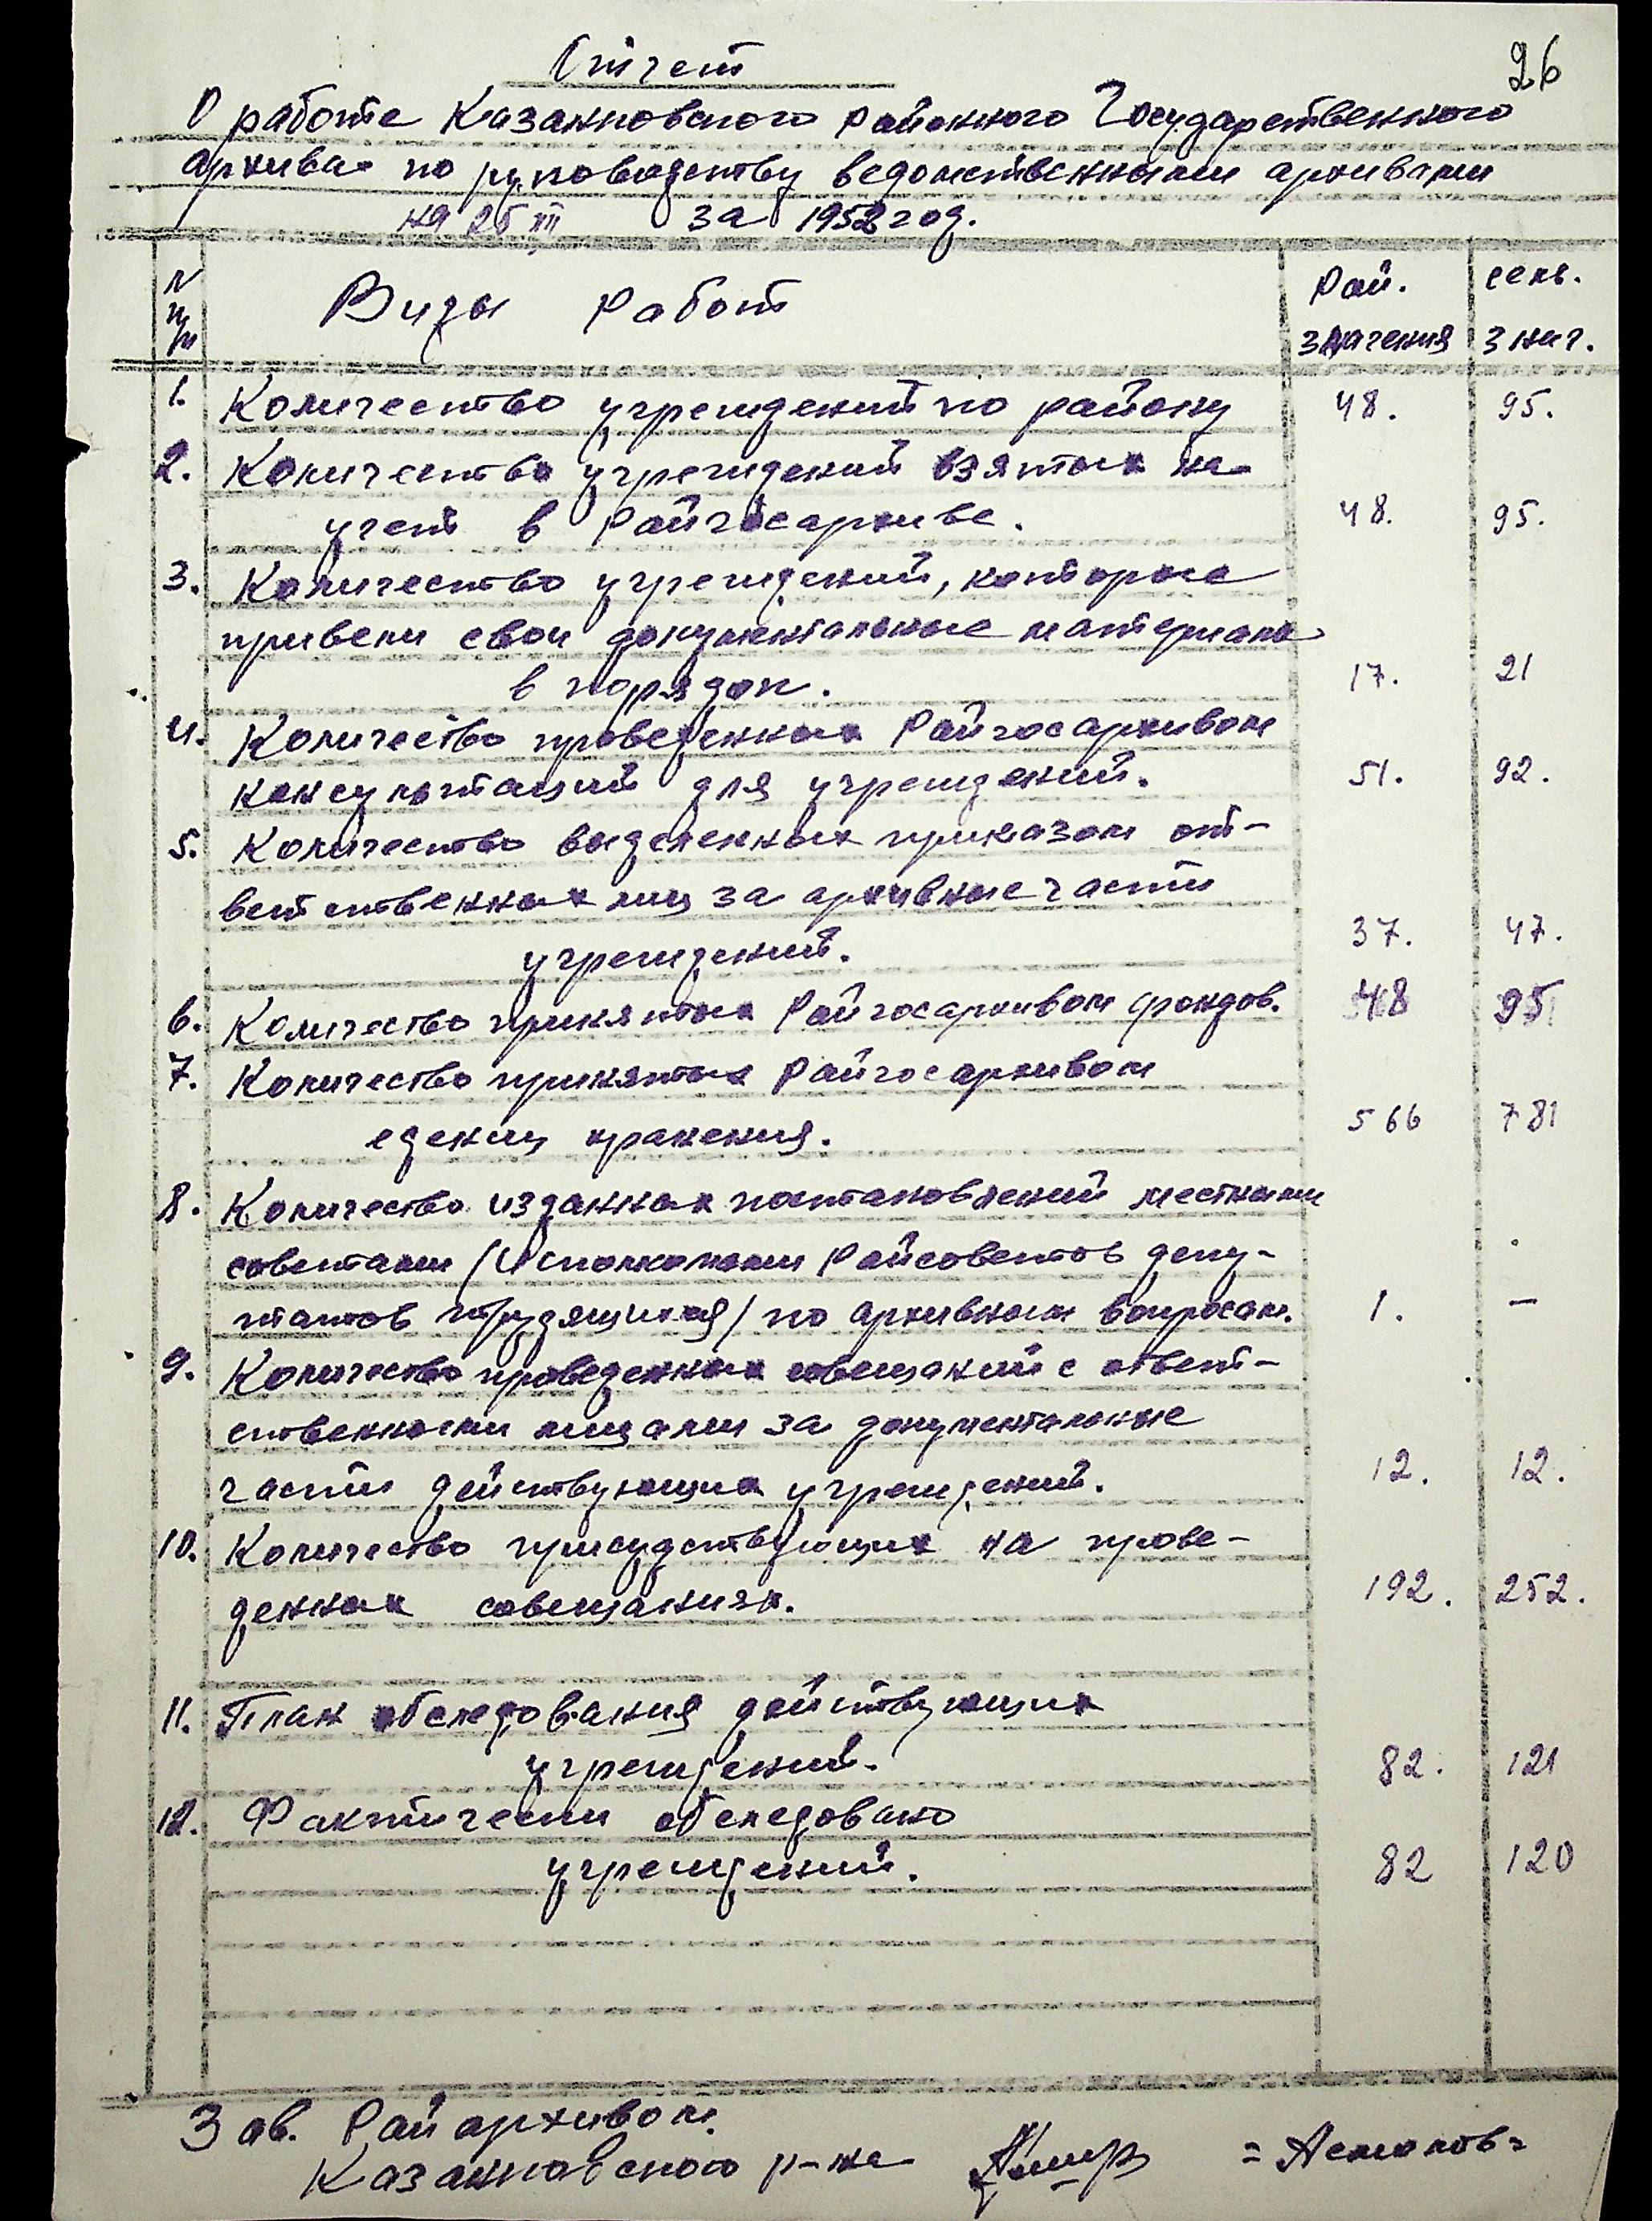 Отчет
26
О работе Казанковского Районного Государственного
архива по руководству ведомственными архивами
на 25 XII за 1952 год.
N п/п
Виды работ
Рай. значения
сель. знач.
1. Количество учреждений по району 48. 95.
2. Количество учреждений взятых на
учет в Райгосархиве. 48. 95.
3. Количество учреждений, которые
привели свои документальные материалы
в порядок. 17. 21
4. Количество проведенных Райгосархивом
консультаций для учреждений. 51. 92.
5. Количество выделенных приказом от-
ветственных лиц за архивные части
учреждений. 37. 47.
6. Количество принятых Райгосархивом фондов. 48 95
7. Количество принятых Райгосархивом
едениц хранения. 566 781
8. Количество изданных постановлений местными
советами (Исполкомами Райсоветов депу-
татов трудящихся) по архивным вопросам. 1. —
9. Количество проведенных совещаний с ответ-
ственными лицами за документальные
части действующих учреждений. 12. 12.
10. Количество присудствующих на прове-
денных совещаниях. 192. 252.
11. План обследования действующих
учреждений. 82. 121
12. Фактически обследовано
учреждений. 82 120
Зав. Райархивом
Казанковского р-на